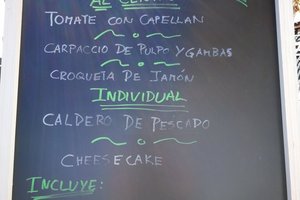 AL CENTRO
TOMATE CON CAPELLAN
CARPACCIO DE PULPO Y GAMBAS
CROQUETA DE JAMÓN
INDIVIDUAL
CALDERO DE PESCADO
CHEESECAKE
INCLUYE: